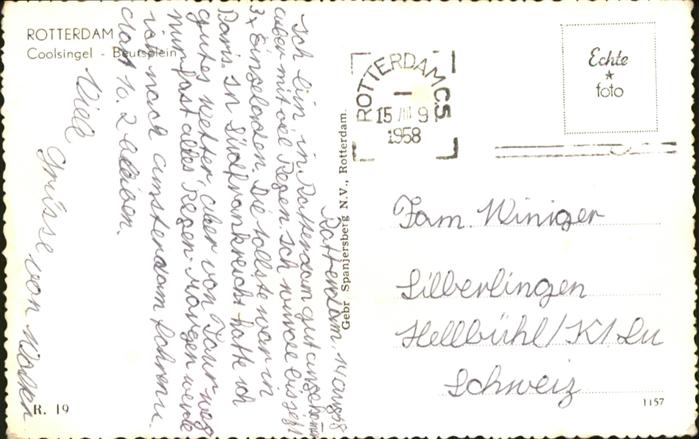 ROTTERDAM
Coolsingel - Beursplein
Rotterdam, 14 Aug. 58
Ich bin in Rotterdam gut angekommen
aber mit viel Regen. Ich wurde bis jetzt
3x eingeladen. Die tollste war in
Paris. In Südfrankreich hatte ich
gutes Wetter, aber von Tour weg
nur fast alles Regen. Morgen werde
ich nach Amsterdam fahren u.
dort 1o. 2 bleiben.
Viele
Grüsse von
R. 19
Gebr Spanjersberg N.V., Rotterdam.
ROTTERDAM CS
15 VIII 9
1958
Echte
*
foto
Fam. Winiger
Silberlingen
Hellbühl/Kt. Lu
Schweiz
1157